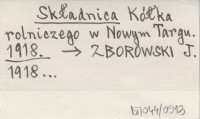 Składnica Kółka
rolniczego w Nowym Targu.
1918. → ZBOROWSKI J.
1918...